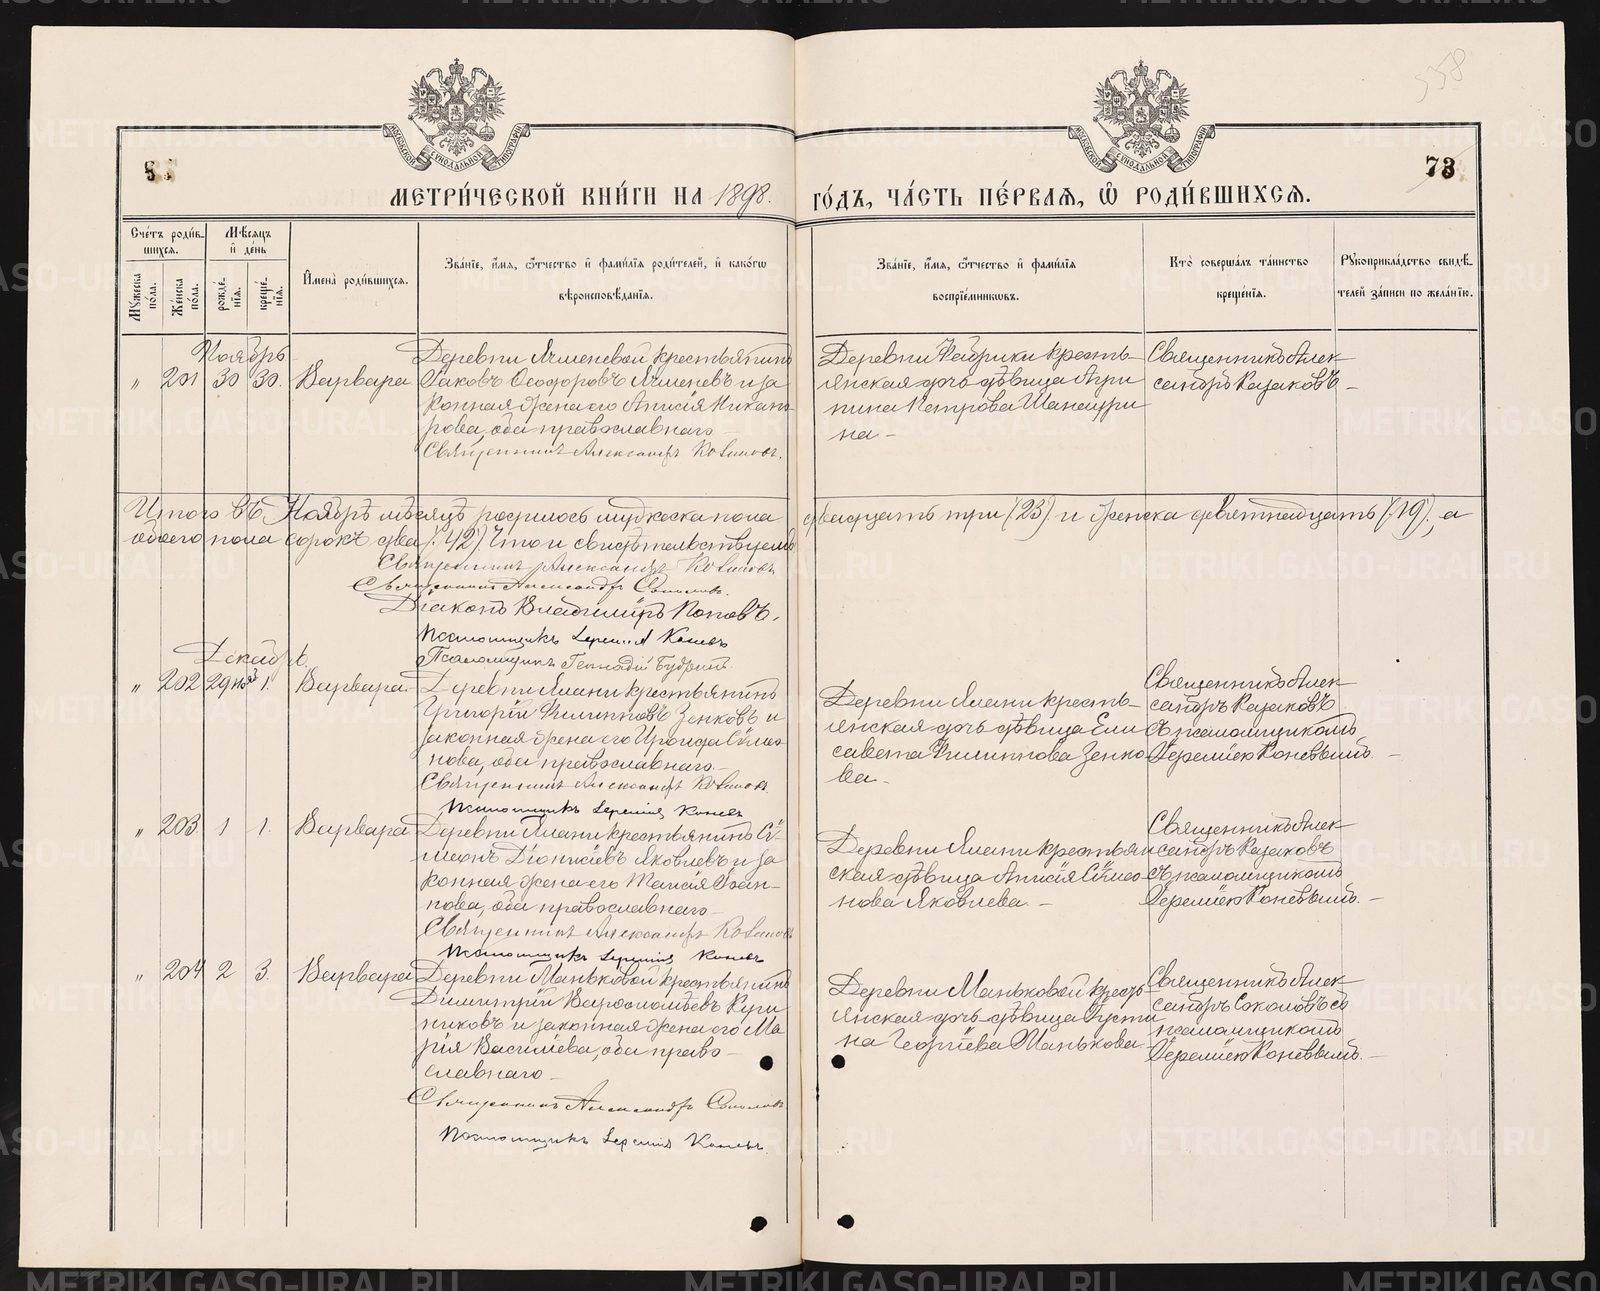 338
73
МЕТРИ́ЧЕСКОЙ КНИ́ГИ НА 1898. ГО́ДЪ, ЧА́СТЬ ПЕ́РВАЯ, Ѽ РОДИ́ВШИХСЯ.
Сче́тъ роди́в-
шихся.
Мѣ́сяцъ
и҆ де́нь
Му́жеска по́ла.
Же́нска по́ла.
рожде́-
нїя.
креще́-
нїя.
И҆мена̀ роди́вшихся.
Зва́нїе, и҆́мя, ѻ҆́тчество и҆ фами́лїя роди́телей, и҆ како́гѡ
вѣроисповѣ́данїя.
Зва́нїе, и҆́мя, ѻ҆́тчество и҆ фами́лїя
воспрїе́мниковъ.
Кто̀ соверша́лъ та́инство
креще́нїя.
Рꙋкоприкла́дство свидѣ́-
телей за́писи по жела́нїю.
Ноябрь
" 201 30 30. Варвара
Деревни Ячменевой крестьянинъ
Іаковъ Ѳеодоровъ Ячменевъ и за
конная жена его Анисія Никано
рова, оба православнаго
Священникъ Александръ Казаковъ.
Деревни Фабрики кресть
янская дочь дѣвица Агри
пина Петрова Шанаури
на -
Священникъ Алек
сандръ Казаковъ -
Итого въ Ноябрѣ мѣсяцѣ родилось мужеска пола двадцать три (23) и женска девятнадцать (19), а
обоего пола сорокъ два (42) что и свидѣтельствуемъ
Священникъ Александръ Казаковъ
Священникъ Александръ Соколовъ.
Діаконъ Владиміръ Поповъ.
Псаломщикъ Іеремія Коневъ
Псаломщикъ Геннадій
Декабрь.
" 202 29 нояб 1. Варвара
Деревни Алани крестьянинъ
Григорій Филипповъ Зенковъ и
законная жена его Ираида Сѵмео
нова, оба православнаго
Священникъ Александръ Казаковъ
Псаломщикъ Іеремія Коневъ
Деревни Алани кресть
янская дочь дѣвица Ели
савета Филиппова Зенко
ва -
Священникъ Алек
сандръ Казаковъ
съ псаломщикомъ
Іереміею Коневымъ. -
" 203 1 1. Варвара
Деревни Алани крестьянинъ Сѵ
меонъ Діонисіевъ Яковлевъ и за
конная жена его Таисія Іоан
нова, оба православнаго
Священникъ Александръ Казаковъ
Псаломщикъ Іеремія Коневъ
Деревни Алани крестьян
ская дѣвица Анисія Сѵмео
нова Яковлева -
Священникъ Алек
сандръ Казаковъ
съ псаломщикомъ
Іереміею Коневымъ. -
" 204 2 3. Варвара
Деревни Маньковой крестьянинъ
Димитрій Варѳоломѣевъ Кури
никовъ и законная жена его Ма
рія Василіева, оба право
славнаго
Священникъ Александръ Соколовъ
Псаломщикъ Іеремія Коневъ.
Деревни Маньковой кресть
янская дочь дѣвица Іусти
на Георгіева Манькова
Священникъ Алек
сандръ Соколовъ съ
псаломщикомъ
Іереміею Коневымъ. -
METRIKI.GASO-URAL.RU